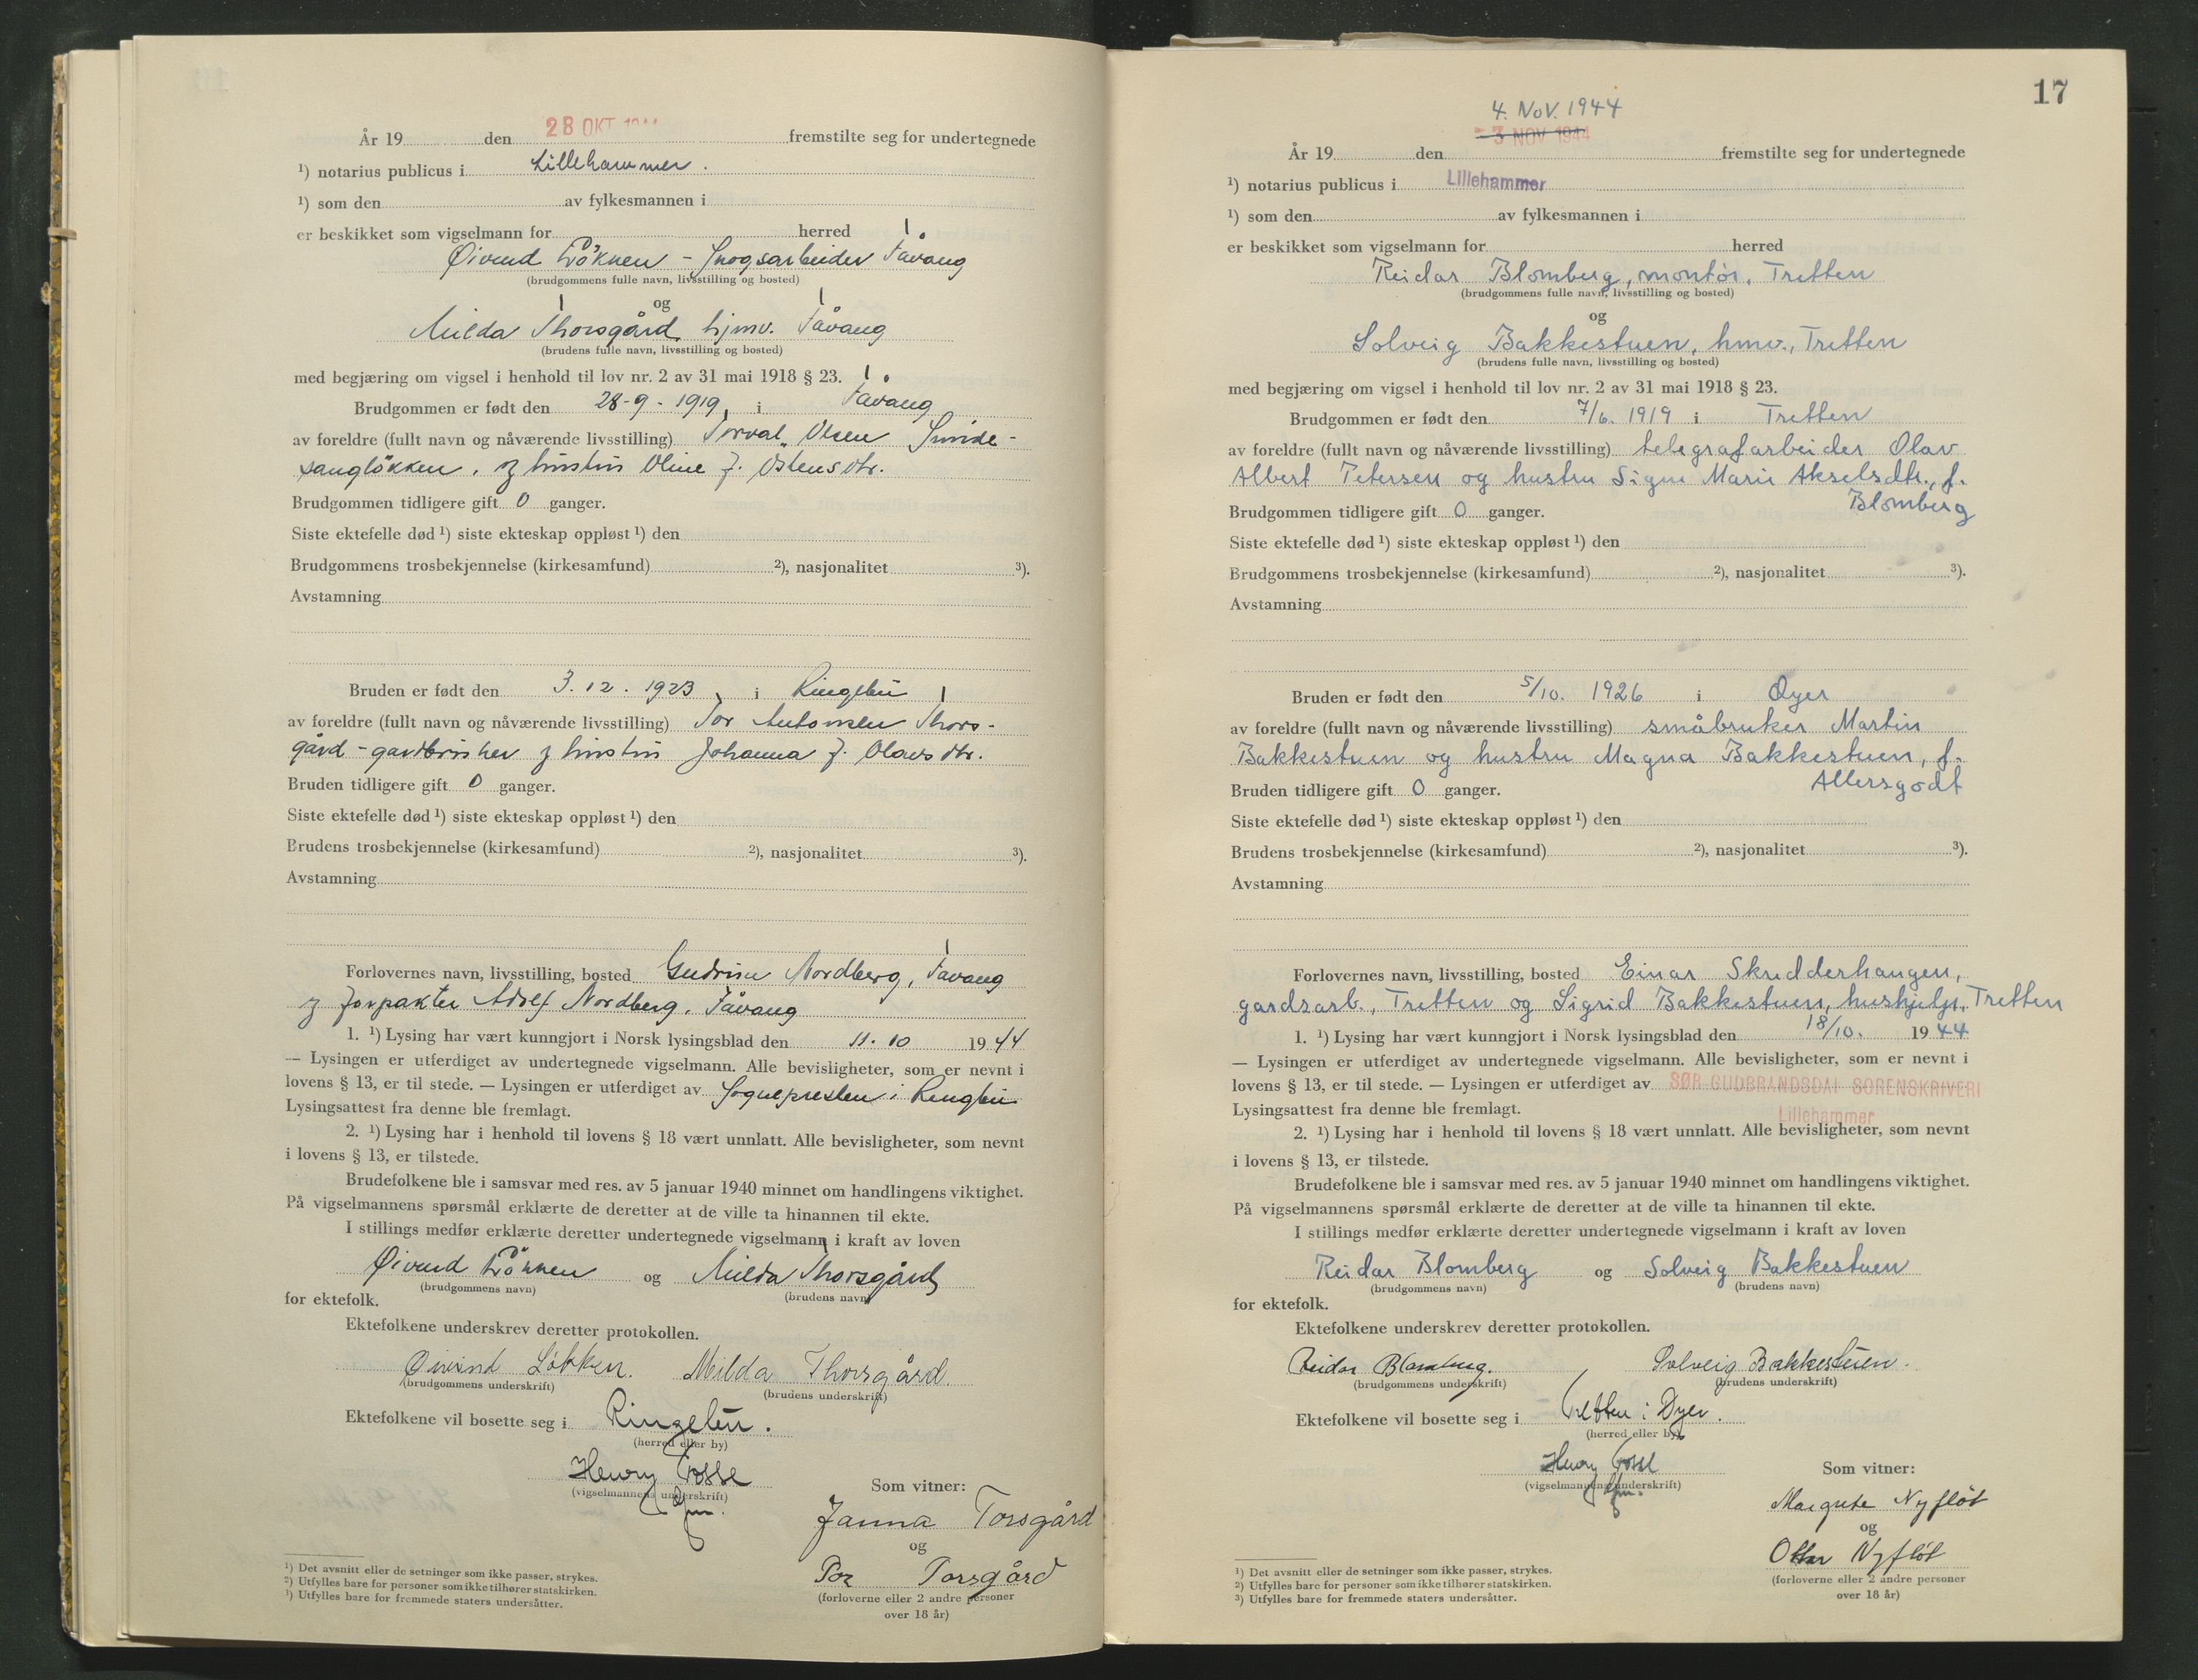 28 OKT 1944
År 19 den fremstilte seg for undertegnede
¹) notarius publicus i Lillehammer.
¹) som den av fylkesmannen i
er beskikket som vigselmann for herred
Øivind Løkken - skogsarbeider Fåvang
(brudgommens fulle navn, livsstilling og bosted)
og
Milda Thorsgård hjmv. Fåvang
(brudens fulle navn, livsstilling og bosted)
med begjæring om vigsel i henhold til lov nr. 2 av 31 mai 1918 § 23.
Brudgommen er født den 28-9-1919, i Fåvang
av foreldre (fullt navn og nåværende livsstilling) Torval Olsen
og hustru Oline f. Ostensdtr.
Brudgommen tidligere gift 0 ganger.
Siste ektefelle død ¹) siste ekteskap oppløst ¹) den
Brudgommens trosbekjennelse (kirkesamfund) ²), nasjonalitet ³).
Avstamning
Bruden er født den 3.12.1923, i Ringebu
av foreldre (fullt navn og nåværende livsstilling) Tor Antonsen Thors-
gård - gardbruker og hustru Johanna f. Olavsdtr.
Bruden tidligere gift 0 ganger.
Siste ektefelle død ¹) siste ekteskap oppløst ¹) den
Brudens trosbekjennelse (kirkesamfund) ²), nasjonalitet ³).
Avstamning
Forlovernes navn, livsstilling, bosted Gudrun Nordberg, Fåvang
og forpakter Adolf Nordberg, Fåvang
1. ¹) Lysing har vært kunngjort i Norsk lysingsblad den 11.10 1944
— Lysingen er utferdiget av undertegnede vigselmann. Alle bevisligheter, som er nevnt i
lovens § 13, er til stede. — Lysingen er utferdiget av Sognepresten i Ringebu
Lysingsattest fra denne ble fremlagt.
2. ¹) Lysing har i henhold til lovens § 18 vært unnlatt. Alle bevisligheter, som nevnt
i lovens § 13, er tilstede.
Brudefolkene ble i samsvar med res. av 5 januar 1940 minnet om handlingens viktighet.
På vigselmannens spørsmål erklærte de deretter at de ville ta hinannen til ekte.
I stillings medfør erklærte deretter undertegnede vigselmann i kraft av loven
Øivind Løkken og Milda Thorsgård
(brudgommens navn) (brudens navn)
for ektefolk.
Ektefolkene underskrev deretter protokollen.
Øivind Løkken. Milda Thorsgård.
(brudgommens underskrift) (brudens underskrift)
Ektefolkene vil bosette seg i Ringebu.
(herred eller by)
Henry Fosse
(vigselmannens underskrift)
Som vitner:
Janna Torsgård
og
Tor Torsgård
(forloverne eller 2 andre personer
over 18 år)
¹) Det avsnitt eller de setninger som ikke passer, strykes.
²) Utfylles bare for personer som ikke tilhører statskirken.
³) Utfylles bare for fremmede staters undersåtter.
17
4. NOV. 1944
- 3 NOV 1944
År 19 den fremstilte seg for undertegnede
¹) notarius publicus i Lillehammer
¹) som den av fylkesmannen i
er beskikket som vigselmann for herred
Reidar Blomberg, montør, Tretten
(brudgommens fulle navn, livsstilling og bosted)
og
Solveig Bakkestuen, hmv., Tretten
(brudens fulle navn, livsstilling og bosted)
med begjæring om vigsel i henhold til lov nr. 2 av 31 mai 1918 § 23.
Brudgommen er født den 7/6. 1919 i Tretten
av foreldre (fullt navn og nåværende livsstilling) telegrafarbeider Olav
Albert Petersen og hustru Signe Marie Akselsdtr., f.
Blomberg
Brudgommen tidligere gift 0 ganger.
Siste ektefelle død ¹) siste ekteskap oppløst ¹) den
Brudgommens trosbekjennelse (kirkesamfund) ²), nasjonalitet ³).
Avstamning
Bruden er født den 5/10. 1926 i Øyer
av foreldre (fullt navn og nåværende livsstilling) småbruker Martin
Bakkestuen og hustru Magna Bakkestuen, f.
Allersgodt
Bruden tidligere gift 0 ganger.
Siste ektefelle død ¹) siste ekteskap oppløst ¹) den
Brudens trosbekjennelse (kirkesamfund) ²), nasjonalitet ³).
Avstamning
Forlovernes navn, livsstilling, bosted Einar Skredderhaugen,
gardsarb., Tretten og Sigrid Bakkestuen, hushjelp, Tretten
1. ¹) Lysing har vært kunngjort i Norsk lysingsblad den 18/10. 1944
— Lysingen er utferdiget av undertegnede vigselmann. Alle bevisligheter, som er nevnt i
lovens § 13, er til stede. — Lysingen er utferdiget av SØR-GUDBRANDSDAL SORENSKRIVERI
Lillehammer
Lysingsattest fra denne ble fremlagt.
2. ¹) Lysing har i henhold til lovens § 18 vært unnlatt. Alle bevisligheter, som nevnt
i lovens § 13, er tilstede.
Brudefolkene ble i samsvar med res. av 5 januar 1940 minnet om handlingens viktighet.
På vigselmannens spørsmål erklærte de deretter at de ville ta hinannen til ekte.
I stillings medfør erklærte deretter undertegnede vigselmann i kraft av loven
Reidar Blomberg og Solveig Bakkestuen
(brudgommens navn) (brudens navn)
for ektefolk.
Ektefolkene underskrev deretter protokollen.
Reidar Blomberg. Solveig Bakkestuen.
(brudgommens underskrift) (brudens underskrift)
Ektefolkene vil bosette seg i Tretten i Øyer.
(herred eller by)
Henry Fosse
(vigselmannens underskrift)
Som vitner:
Margrete Nyfløt
og
Ottar Nyfløt
(forloverne eller 2 andre personer
over 18 år)
¹) Det avsnitt eller de setninger som ikke passer, strykes.
²) Utfylles bare for personer som ikke tilhører statskirken.
³) Utfylles bare for fremmede staters undersåtter.